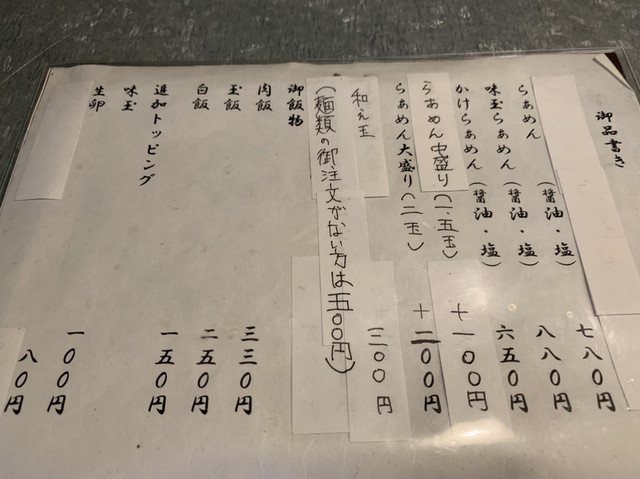 御品書き
らぁめん (醤油・塩) 七八〇円
味玉らぁめん (醤油・塩) 八八〇円
かけらぁめん (醤油・塩) 六五〇円
らぁめん中盛り(一.五玉) +一〇〇円
らぁめん大盛り(二玉) +二〇〇円
和え玉 三〇〇円
(麺類の御注文がない方は五〇〇円)
御飯物
肉飯 三三〇円
玉飯 二五〇円
白飯 一五〇円
追加トッピング
味玉 一〇〇円
生卵 八〇円